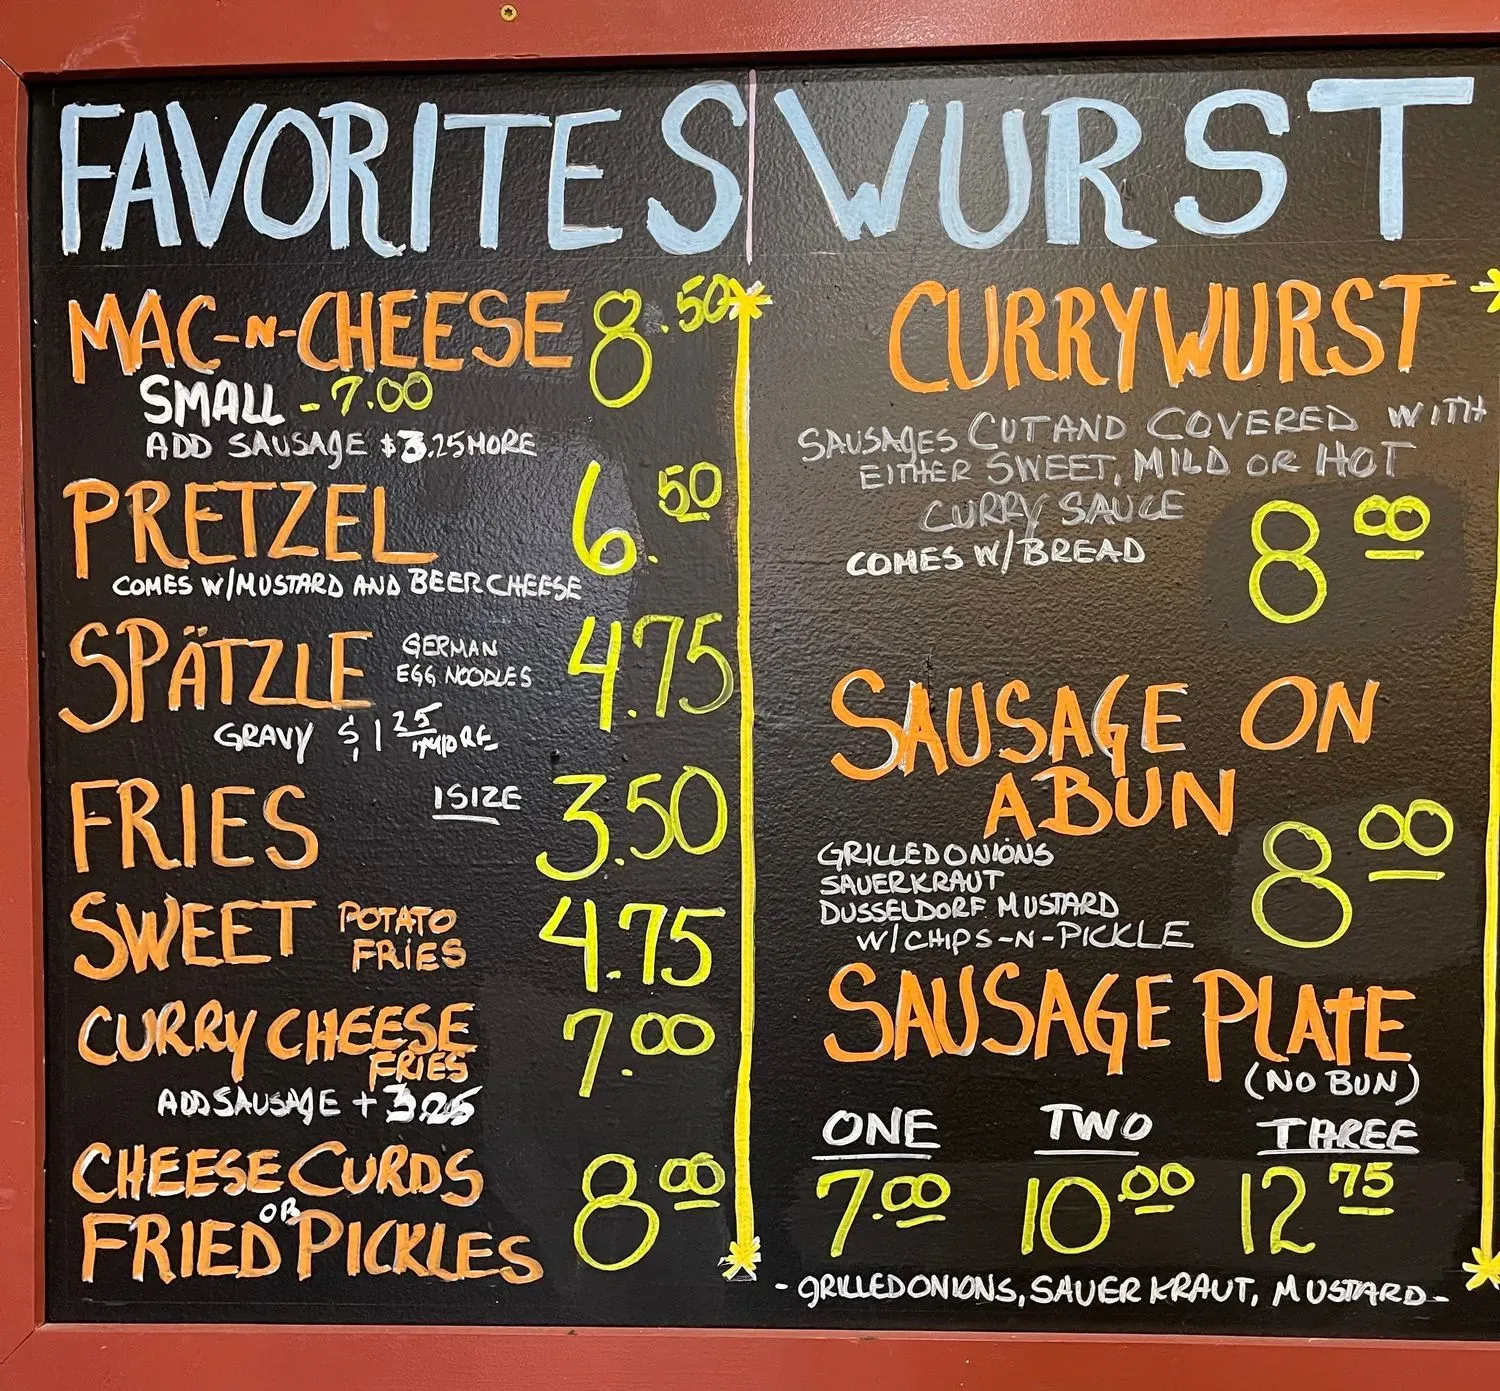 FAVORITES
MAC-N-CHEESE 8.50
SMALL - 7.00
ADD SAUSAGE $3.25 MORE
PRETZEL 6.50
COMES W/MUSTARD AND BEER CHEESE
SPÄTZLE GERMAN EGG NOODLES 4.75
GRAVY $1 25 MORE
FRIES 1 SIZE 3.50
SWEET POTATO FRIES 4.75
CURRY CHEESE FRIES 7.00
ADD SAUSAGE + 3.25
CHEESE CURDS
OR
FRIED PICKLES 8 00
WURST
CURRYWURST
SAUSAGES CUT AND COVERED WITH
EITHER SWEET, MILD OR HOT
CURRY SAUCE
COMES W/BREAD
8
SAUSAGE ON
A BUN
8 00
GRILLED ONIONS
SAUERKRAUT
DUSSELDORF MUSTARD
W/CHIPS-N-PICKLE
SAUSAGE PLATE
(NO BUN)
ONE TWO THREE
7.00 10.00 12 75
- GRILLED ONIONS, SAUERKRAUT, MUSTARD -